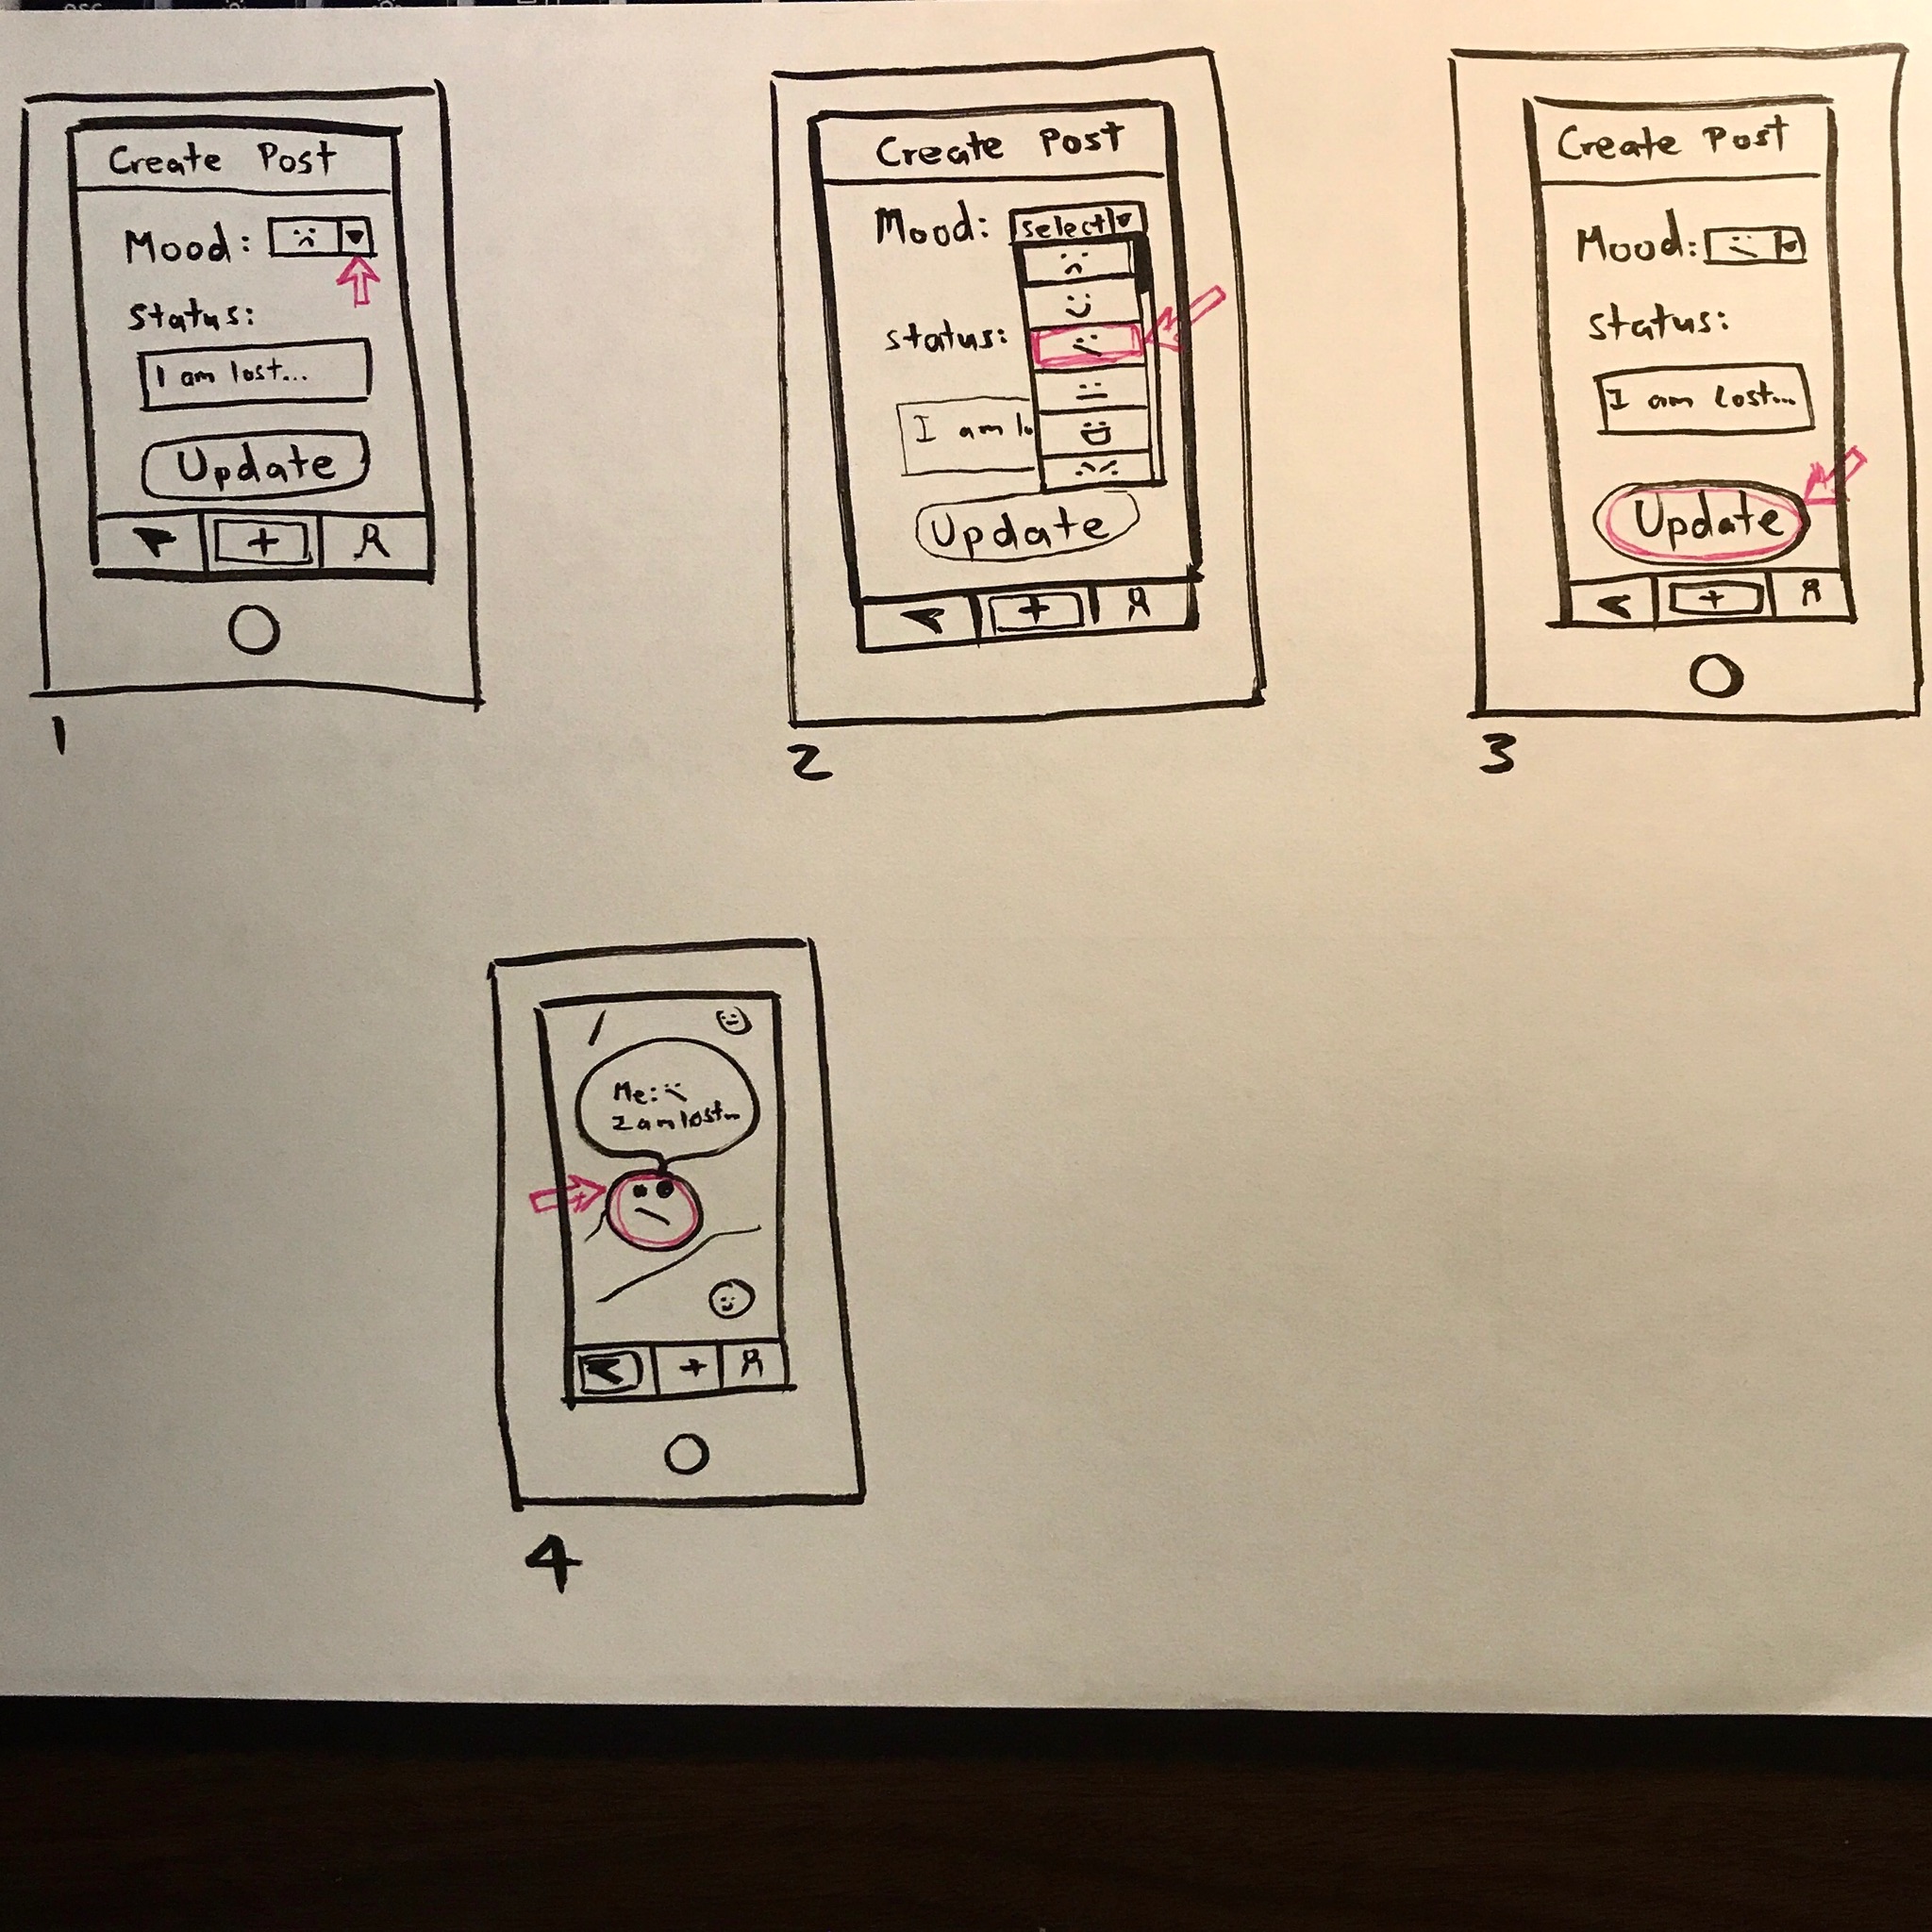 Create Post
Mood:
Status:
I am lost...
Update
+
1
Create Post
Mood: select
status:
I am lo
Update
+
2
Create Post
Mood:
status:
I am lost...
Update
+
3
Me: :\
I am lost...
+
4